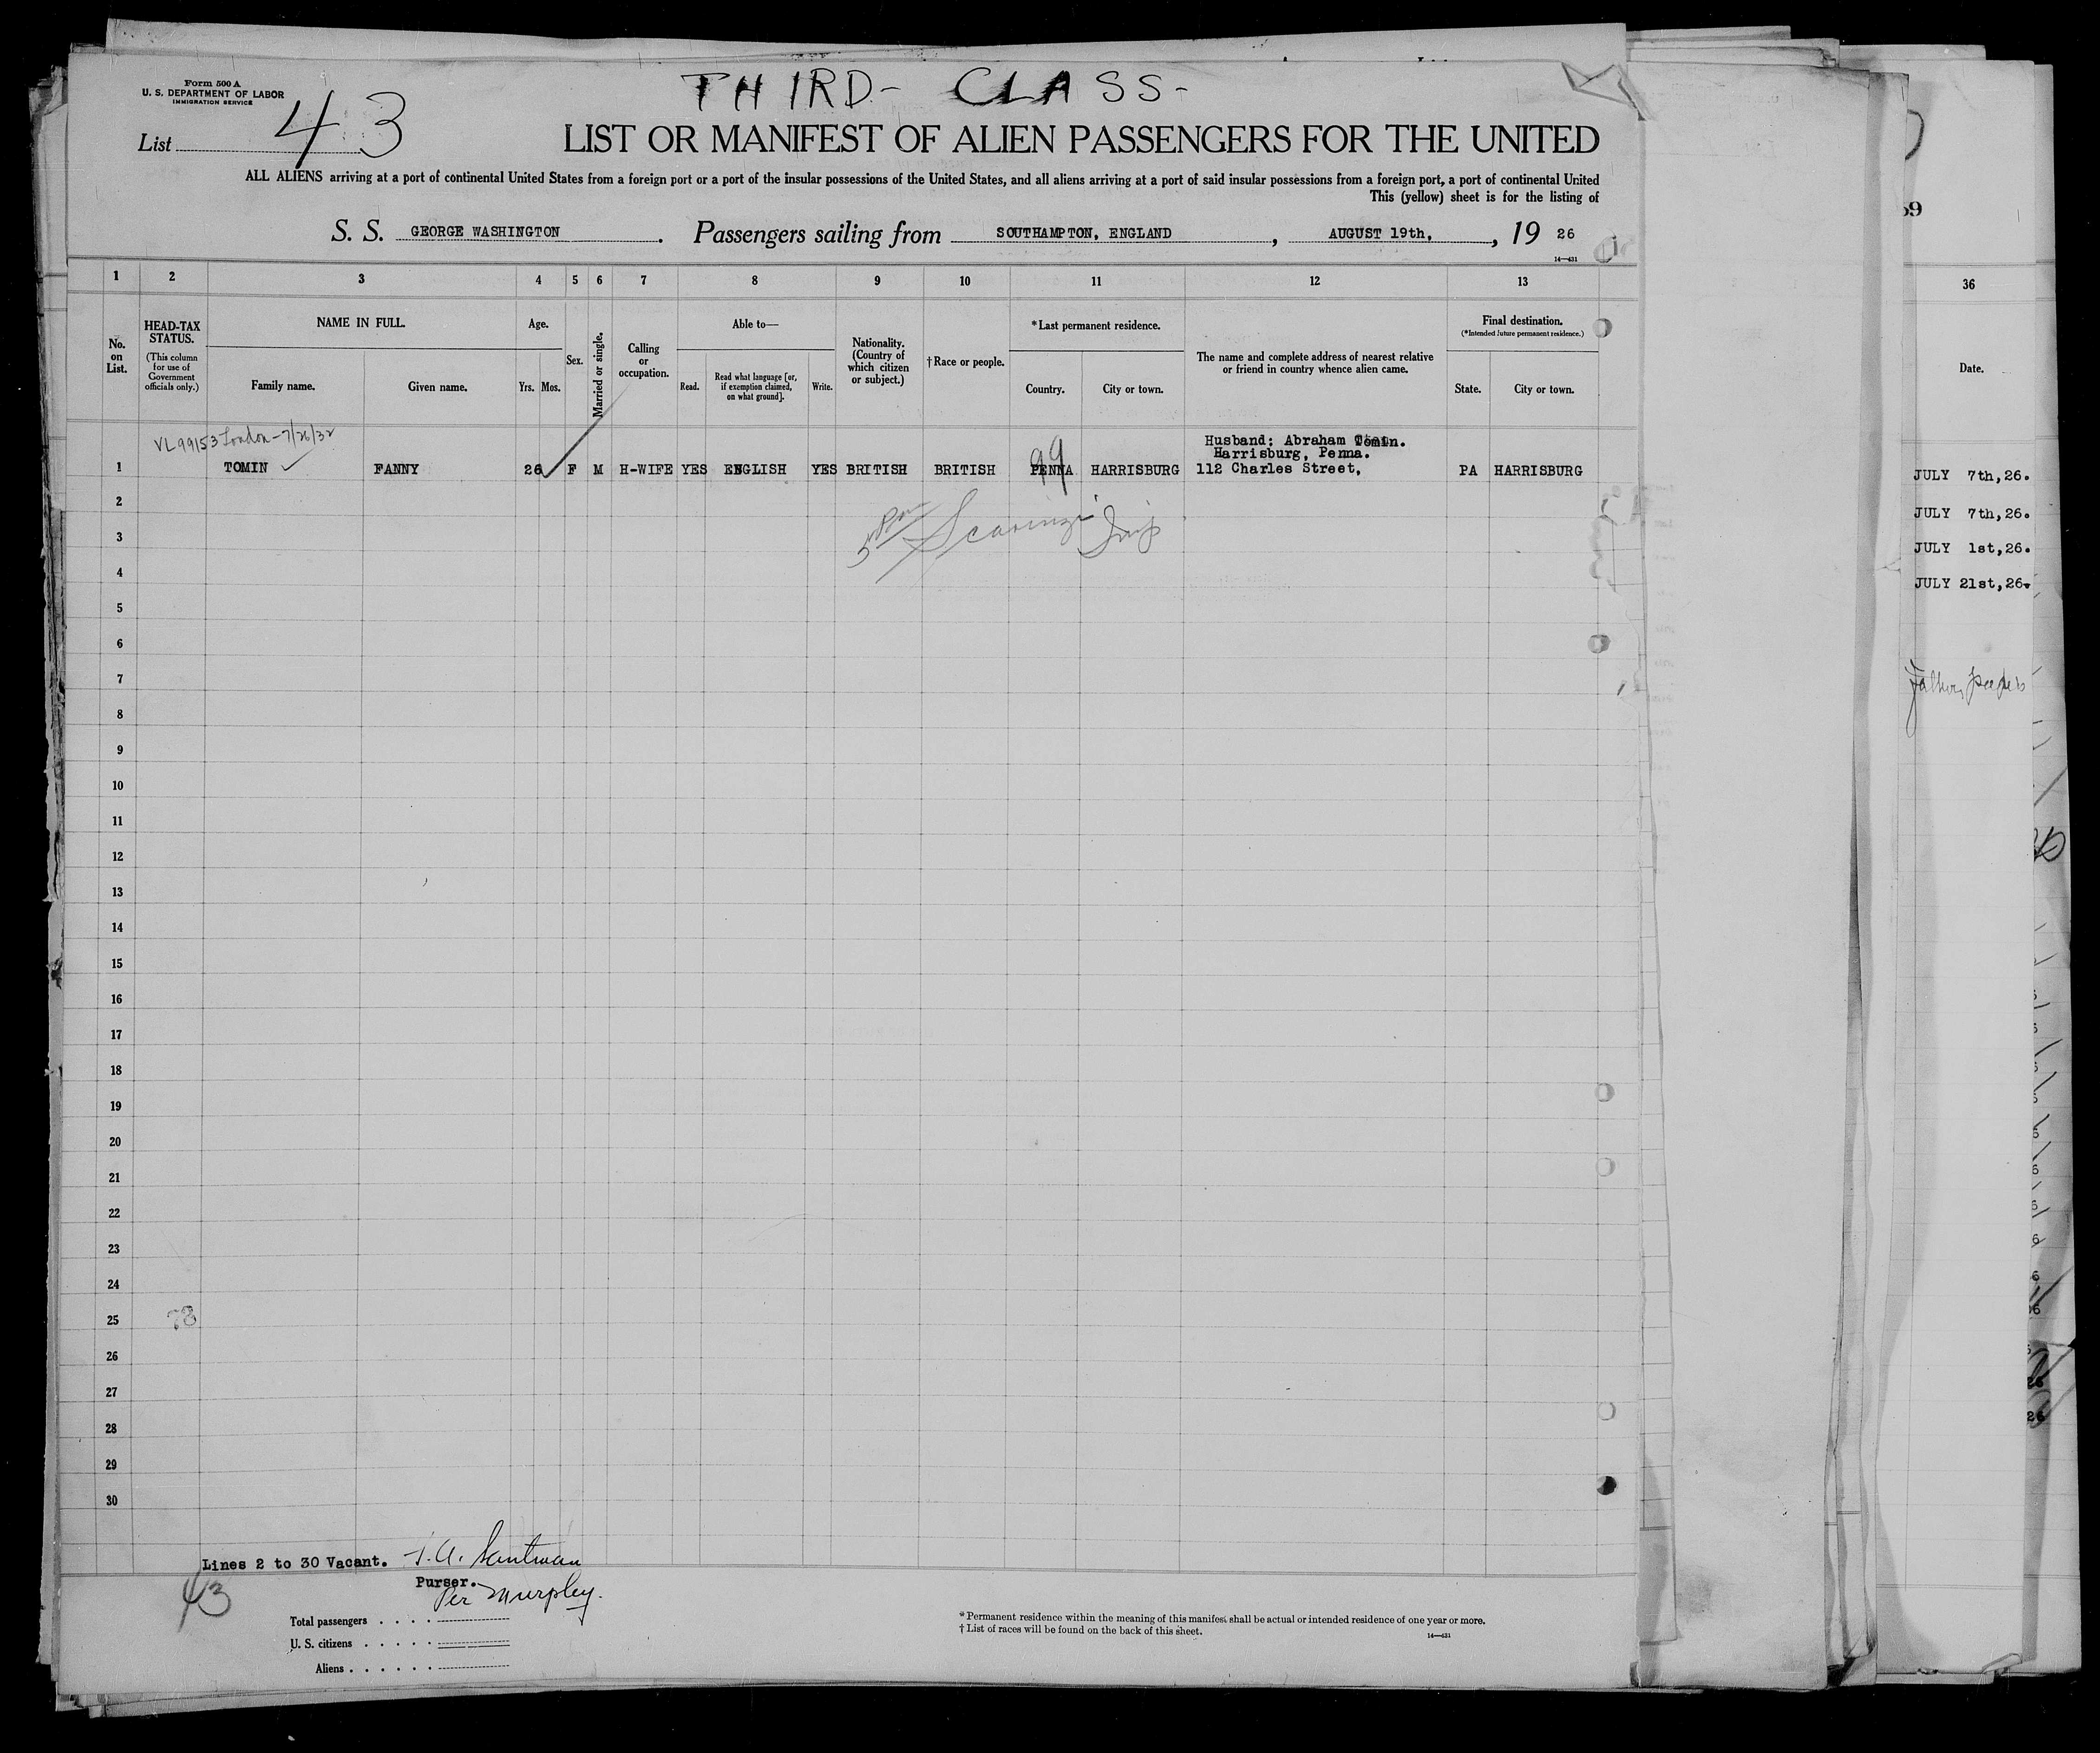 Form 500 A
U. S. DEPARTMENT OF LABOR
IMMIGRATION SERVICE
THIRD- CLASS-
List 43
LIST OR MANIFEST OF ALIEN PASSENGERS FOR THE UNITED
ALL ALIENS arriving at a port of continental United States from a foreign port or a port of the insular possessions of the United States, and all aliens arriving at a port of said insular possessions from a foreign port, a port of continental United
This (yellow) sheet is for the listing of
S. S. GEORGE WASHINGTON . Passengers sailing from SOUTHAMPTON, ENGLAND , AUGUST 19th, , 19 26
14—431
59
1 2 3 4 5 6 7 8 9 10 11 12 13
36
No. on List.
HEAD-TAX STATUS.
(This column for use of Government officials only.)
NAME IN FULL.
Family name. Given name.
Age.
Yrs. Mos.
Sex.
Married or single.
Calling or occupation.
Able to—
Read. Read what language [or, if exemption claimed, on what ground]. Write.
Nationality. (Country of which citizen or subject.)
†Race or people.
*Last permanent residence.
Country. City or town.
The name and complete address of nearest relative or friend in country whence alien came.
Final destination.
(*Intended future permanent residence.)
State. City or town.
Date.
VL 99153 London - 7/26/32
Husband: Abraham Tomin.
Harrisburg, Penna.
1 TOMIN FANNY 26 F M H-WIFE YES ENGLISH YES BRITISH BRITISH PENNA HARRISBURG 112 Charles Street, PA HARRISBURG
99
JULY 7th,26.
JULY 7th,26.
JULY 1st,26.
JULY 21st,26.
2
3
4
5
6
7
8
9
10
11
12
13
14
15
16
17
18
19
20
21
22
23
24
25
78
26
27
28
29
30
Lines 2 to 30 Vacant.
Purser.
Per Murphy.
43
Total passengers . . . .
U. S. citizens . . . . .
Aliens . . . . . .
*Permanent residence within the meaning of this manifest shall be actual or intended residence of one year or more.
†List of races will be found on the back of this sheet.
14—431